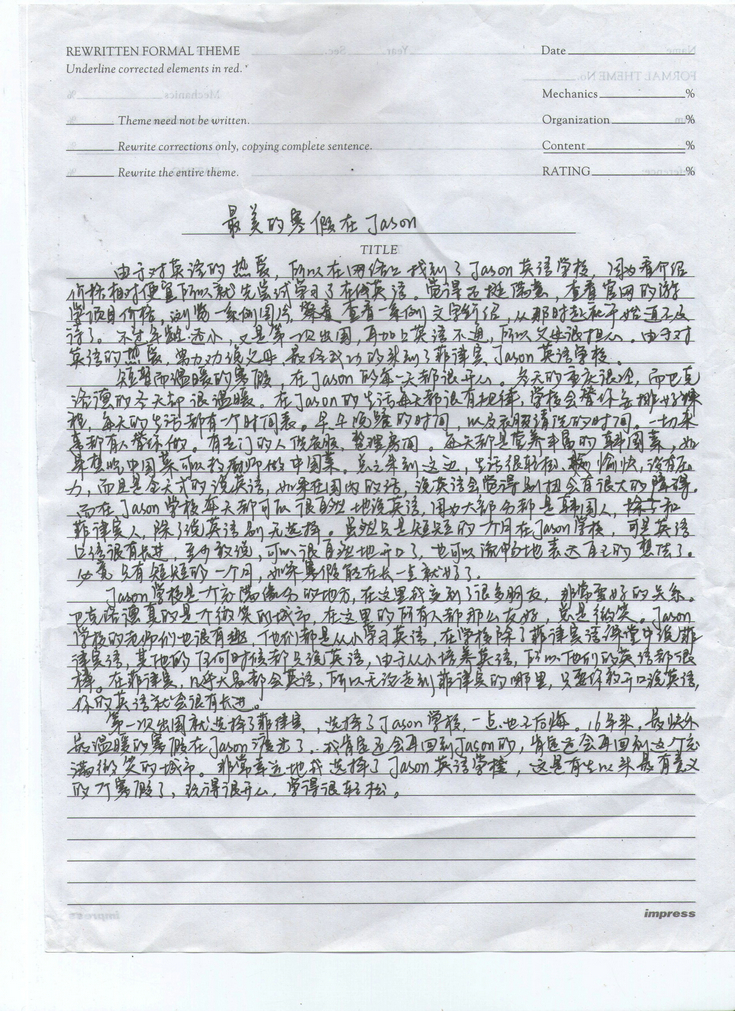 REWRITTEN FORMAL THEME
Underline corrected elements in red.
Theme need not be written.
Rewrite corrections only, copying complete sentence.
Rewrite the entire theme.
Date
Mechanics %
Organization %
Content %
RATING %
最美的寒假在Jason
TITLE
由于对英语的热爱，所以在网络上找到了Jason英语学校，因为看介绍
价格相对便宜所以就先尝试学习了在线英语。觉得还挺满意，查看官网的游
学项目价格，浏览一条例图片，查看一条例文字介绍，从那时起就开始迫不及
待了。不过年龄还小，又是第一次出国，再加上英语不通，所以父母很担心。由于对
英语的热爱，努力劝说父母，最终成功的来到了菲律宾Jason英语学校。
短暂而温暖的寒假，在Jason的每一天都很开心。冬天的重庆很冷，而巴克
洛德的冬天却很温暖。在Jason的生活每天都很有规律，学校会帮你安排好课
程，每天的生活都有一个时间表。早午晚餐的时间，以及衣服清洗的时间。一切来
着都有人帮你做。有专门的人洗衣服，整理房间。每天都是营养丰富的韩国菜，如
果想吃中国菜可以找厨师做中国菜。总之来到这边，生活很轻松，愉快，没有压
力，而且是全天式的说英语，如果在国内的话，说英语会觉得别扭会有很大的障碍。
而在Jason学校每天都可以很自然地说英语，因为大部分都是韩国人，除了和
菲律宾人，除了说英语别无选择。虽然只是短短的一个月在Jason学校，可是英语
口语很有长进，至少敢说，可以很自然地开口了，也可以流畅地表达自己的想法了。
毕竟只有短短的一个月，如果寒假能在长一点就好了。
Jason学校是一个充满缘分的地方，在这里交到了很多朋友，非常要好的关系。
巴克洛德真的是个微笑的城市，在这里的所有人都那么友好，总是微笑。Jason
学校的老师们也很有趣，他们都是从小学习英语，在学校除了菲律宾语课堂中说菲
律宾语，其他的任何时候都只说英语，由于从小培养英语，所以他们的英语都很
棒。在菲律宾，几乎人人都会英语，所以无论走到菲律宾的哪里，只要你敢开口说英语，
你的英语就会很有长进。
第一次出国就选择了菲律宾，选择了Jason学校，一点也不后悔。16年来，最快乐
最温暖的寒假在Jason渡过了，我肯定还会再回到Jason的，肯定还会再回到这个充
满微笑的城市。非常幸运地我选择了Jason英语学校，这是有生以来最有意义
的个寒假了，玩得很开心，学得很轻松。
impress